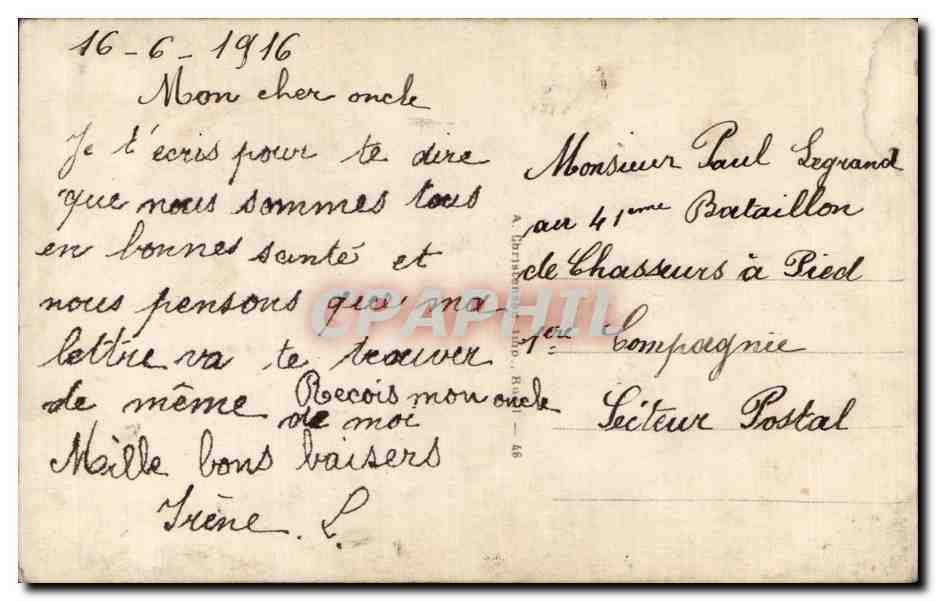 16-6-1916
Mon cher oncle
Je t'écris pour te dire
que nous sommes tous
en bonnes santé et
nous pensons que ma
lettre va te trouver
de même Reçois mon oncle
de moi
Mille bons baisers
Irène. L.
Monsieur Paul Legrand
au 41eme Bataillon
de Chasseurs à Pied
1ere Compagnie
Secteur Postal
CPAPHIL